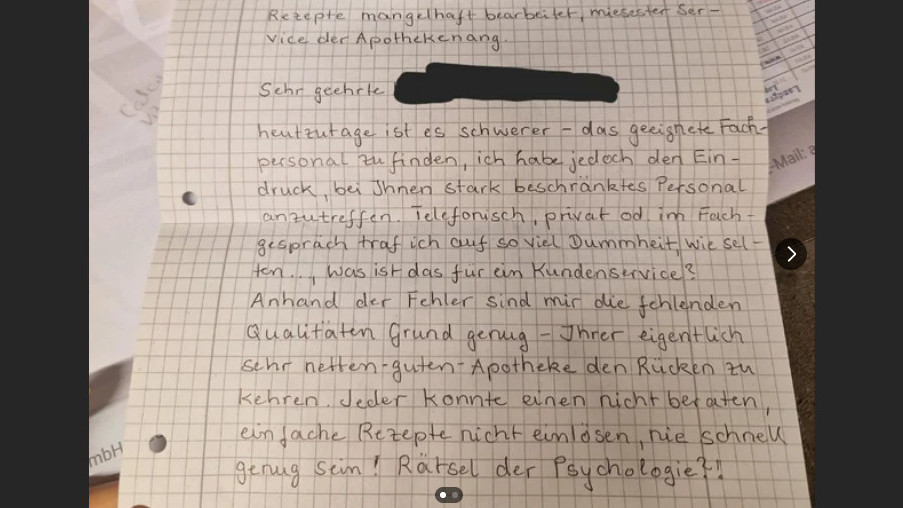 Rezepte mangelhaft bearbeitet, miesester Ser-
vice der Apothekenang.
Sehr geehrte
heutzutage ist es schwerer - das geeignete Fach-
personal zu finden, ich habe jedoch den Ein-
druck, bei Ihnen stark beschränktes Personal
anzutreffen. Telefonisch, privat od. im Fach-
gespräch traf ich auf so viel Dummheit, wie sel-
ten..., was ist das für ein Kundenservice?
Anhand der Fehler sind mir die fehlenden
Qualitäten Grund genug - Ihrer eigentlich
sehr netten-guten-Apotheke den Rücken zu
kehren. Jeder konnte einen nicht beraten,
einfache Rezepte nicht einlösen, nie schnell
genug sein! Rätsel der Psychologie?!
mbH
-Mail: a